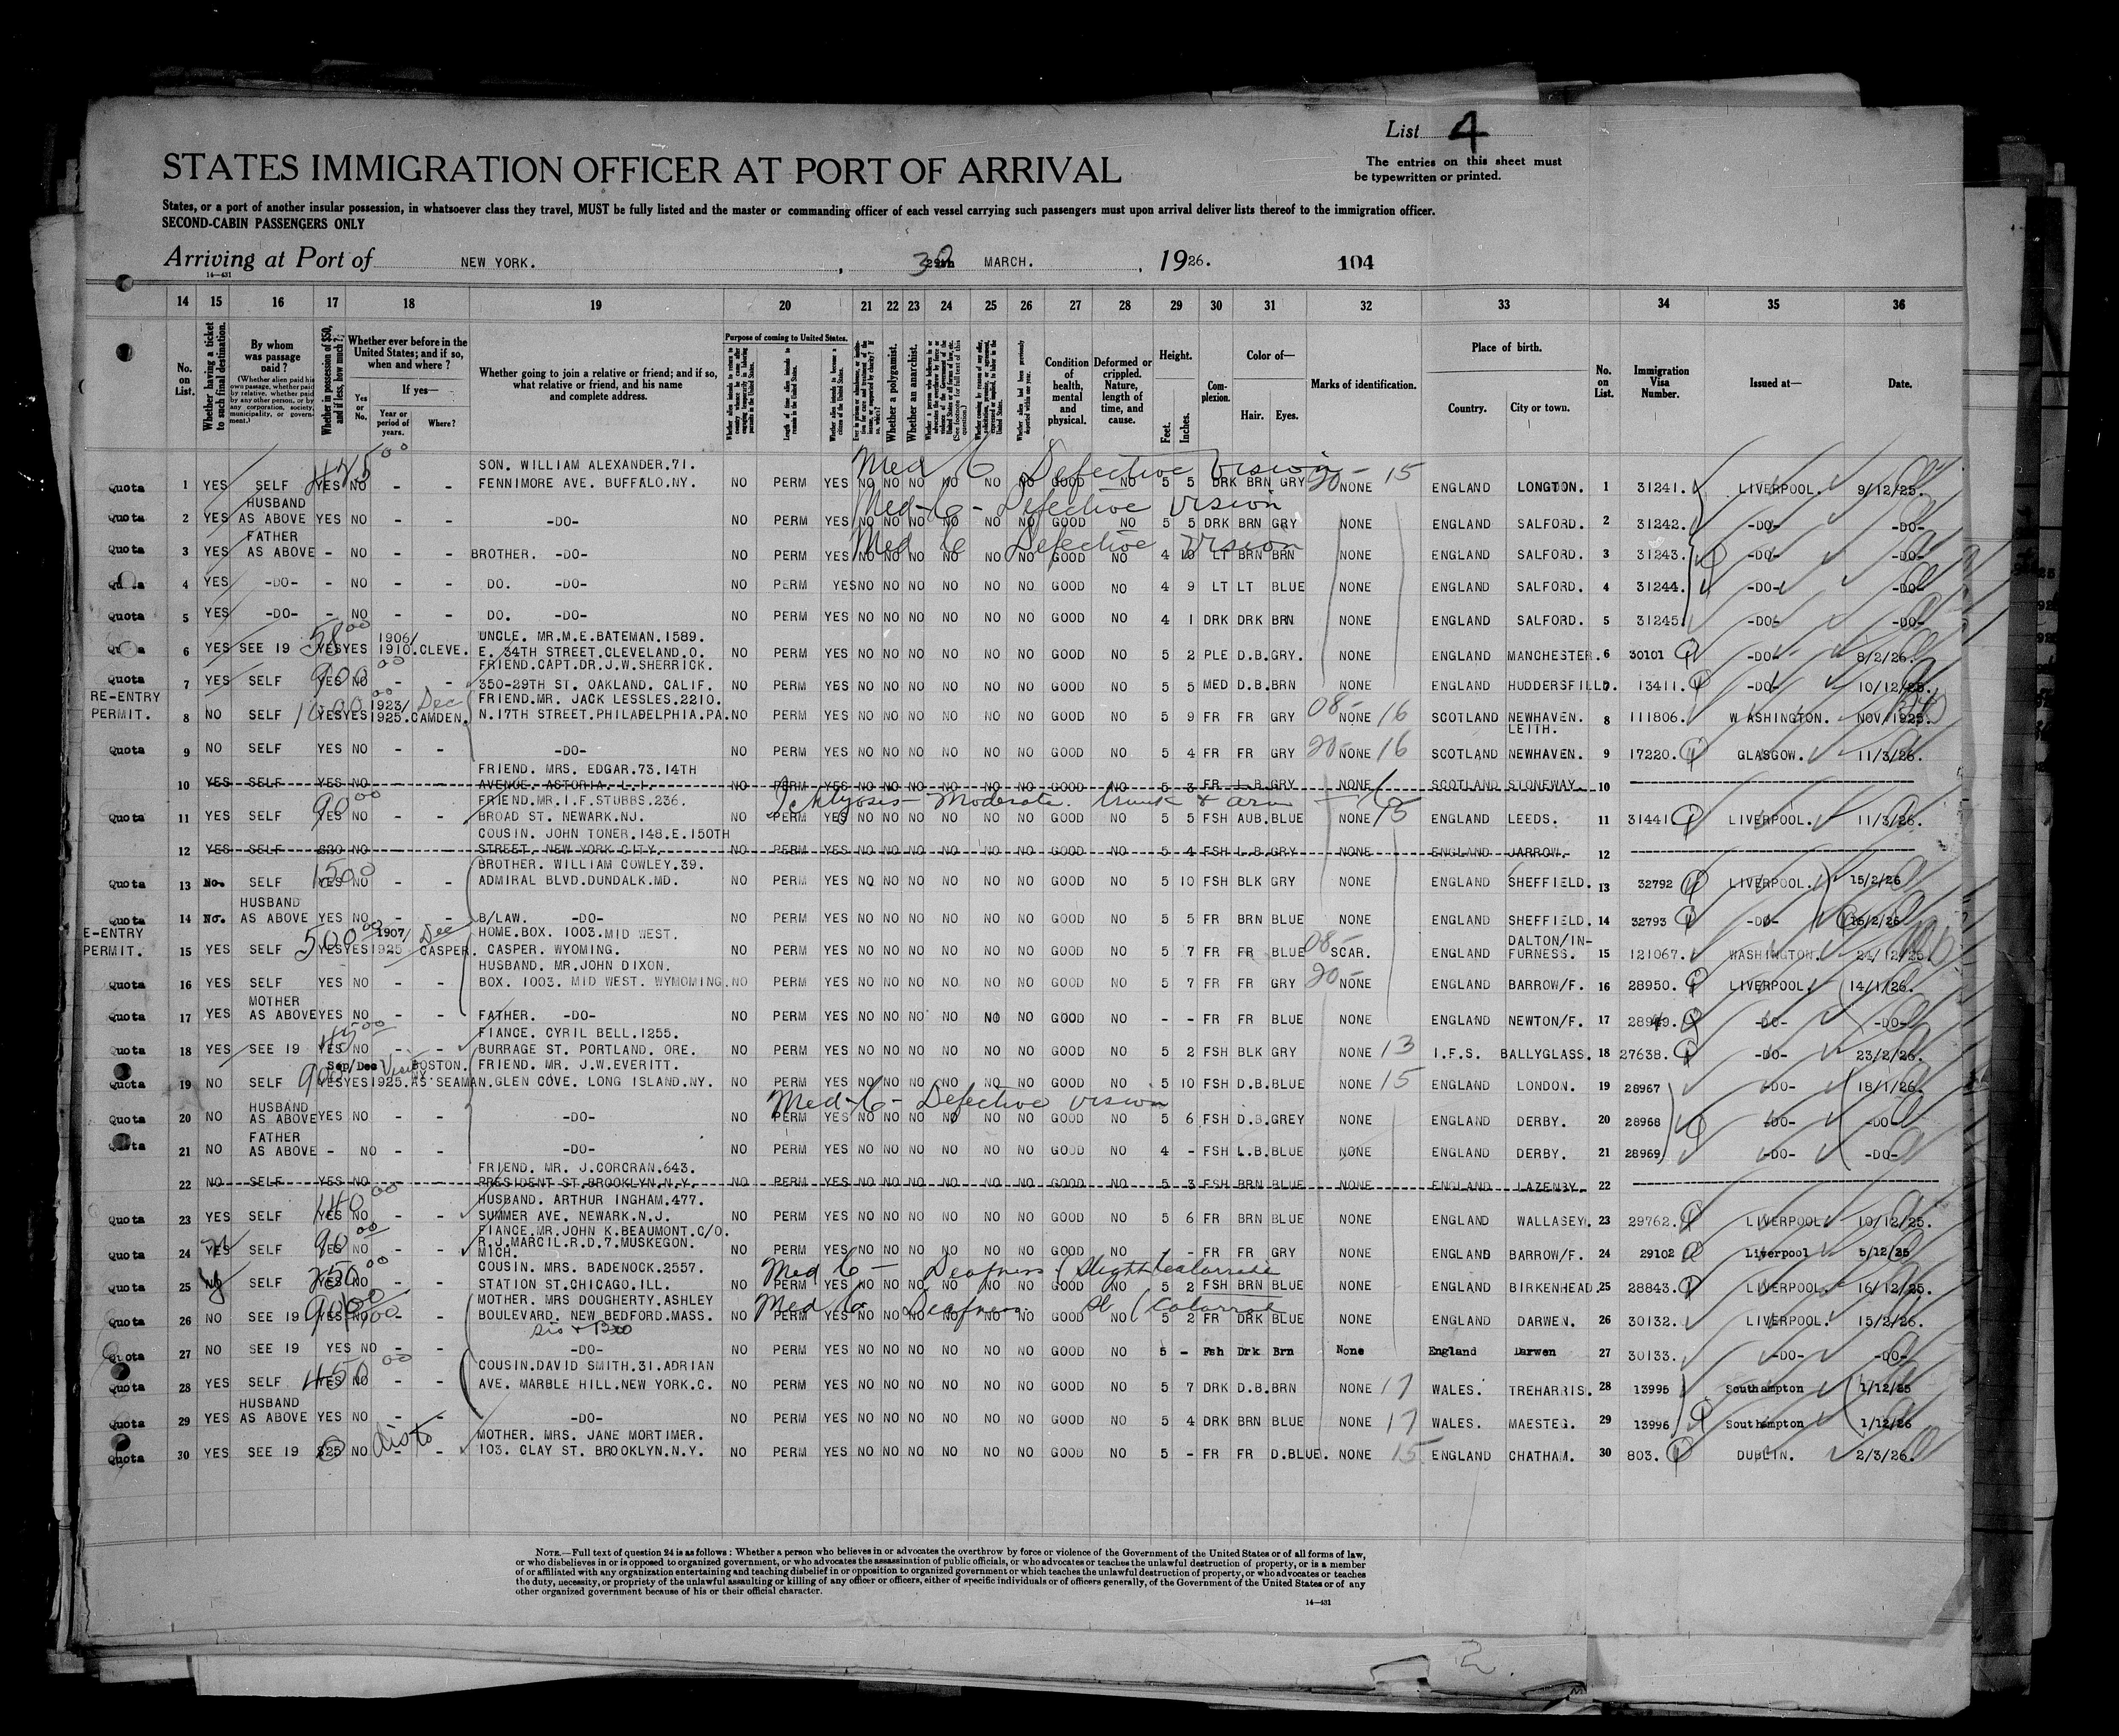 List 4
STATES IMMIGRATION OFFICER AT PORT OF ARRIVAL
The entries on this sheet must
be typewritten or printed.
States, or a port of another insular possession, in whatsoever class they travel, MUST be fully listed and the master or commanding officer of each vessel carrying such passengers must upon arrival deliver lists thereof to the immigration officer.
SECOND-CABIN PASSENGERS ONLY
Arriving at Port of NEW YORK. , 30 MARCH. , 1926. 104
14—431
14 15 16 17 18 19 20 21 22 23 24 25 26 27 28 29 30 31 32 33 34 35 36
No. on List.
Whether having a ticket to such final destination.
By whom was passage paid?
(Whether alien paid his own passage, whether paid by relative, whether paid by any other person, or by any corporation, society, municipality, or government.)
Whether in possession of $50, and if less, how much?
Whether ever before in the United States; and if so, when and where?
Yes or No.
If yes—
Year or period of years.
Where?
Whether going to join a relative or friend; and if so, what relative or friend, and his name and complete address.
Purpose of coming to United States.
Length of time alien intends to remain in the United States.
Whether alien intends to become a citizen of the United States.
Whether a polygamist.
Whether an anarchist.
Condition of health, mental and physical.
Deformed or crippled. Nature, length of time, and cause.
Height.
Feet.
Inches.
Complexion.
Color of—
Hair.
Eyes.
Marks of identification.
Place of birth.
Country.
City or town.
No. on List.
Immigration Visa Number.
Issued at—
Date.
Med C Defective Vision
SON. WILLIAM ALEXANDER.71.
Quota 1 YES SELF YES NO - - FENNIMORE AVE. BUFFALO.NY. NO PERM YES NO NO NO NO NO NO GOOD NO 5 5 DRK BRN GRY 20- NONE 15 ENGLAND LONGTON. 1 31241. LIVERPOOL. 9/12/25.
Med-C- Defective Vision
HUSBAND
Quota 2 YES AS ABOVE YES NO - - -DO- NO PERM YES NO NO NO NO NO NO GOOD NO 5 5 DRK BRN GRY NONE ENGLAND SALFORD. 2 31242. -DO- -DO-
Med C Defective Vision
FATHER
Quota 3 YES AS ABOVE - NO - - BROTHER. -DO- NO PERM YES NO NO NO NO NO NO GOOD NO 4 10 LT BRN BRN NONE ENGLAND SALFORD. 3 31243. -DO- -DO-
4 YES -DO- - NO - - DO. -DO- NO PERM YES NO NO NO NO NO NO GOOD NO 4 9 LT LT BLUE NONE ENGLAND SALFORD. 4 31244. -DO- -DO-
Quota 5 YES -DO- - NO - - DO. -DO- NO PERM YES NO NO NO NO NO NO GOOD NO 4 1 DRK DRK BRN NONE ENGLAND SALFORD. 5 31245. -DO- -DO-
58 00 1906/ UNCLE. MR.M.E.BATEMAN.1589.
6 YES SEE 19 YES YES 1910. CLEVE. E. 34TH STREET.CLEVELAND.O. NO PERM YES NO NO NO NO NO NO GOOD NO 5 2 PLE D.B. GRY. NONE ENGLAND MANCHESTER. 6 30101 -DO- 8/2/26.
FRIEND.CAPT.DR.J.W.SHERRICK.
Quota 7 YES SELF YES NO - - 350-29TH ST. OAKLAND. CALIF. NO PERM YES NO NO NO NO NO NO GOOD NO 5 5 MED D.B. BRN NONE ENGLAND HUDDERSFIELD. 13411. -DO- 10/12/25.
RE-ENTRY 1923/ Dec FRIEND.MR. JACK LESSLES.2210.
PERMIT. 8 NO SELF YES YES 1925. CAMDEN. N.17TH STREET.PHILADELPHIA.PA. NO PERM YES NO NO NO NO NO NO GOOD NO 5 9 FR FR GRY 08- NONE 16 SCOTLAND NEWHAVEN. LEITH. 8 111806. WASHINGTON. NOV/1925.
Quota 9 NO SELF YES NO - - -DO- NO PERM YES NO NO NO NO NO NO GOOD NO 5 4 FR FR GRY 20- NONE 16 SCOTLAND NEWHAVEN. 9 17220. GLASGOW. 11/3/26.
FRIEND. MRS. EDGAR.73.14TH
10 YES SELF YES NO - - AVENUE. ASTORIA. L.I. NO PERM YES NO NO NO NO NO NO GOOD NO 5 3 FR L.B. GRY NONE SCOTLAND STONEWAY. 10
Ichtyosis - Moderate. trunk & arm
90 00 FRIEND.MR.I.F.STUBBS.236.
Quota 11 YES SELF YES NO - - BROAD ST. NEWARK.NJ. NO PERM YES NO NO NO NO NO NO GOOD NO 5 5 FSH AUB. BLUE NONE 15 ENGLAND LEEDS. 11 31441. LIVERPOOL. 11/3/26.
COUSIN. JOHN TONER.148.E.150TH
12 YES SELF NO - - STREET. NEW YORK CITY. NO PERM YES NO NO NO NO NO NO GOOD NO 5 4 FSH L.B. GRY NONE ENGLAND JARROW. 12
BROTHER. WILLIAM COWLEY.39.
Quota 13 No. SELF YES NO - - ADMIRAL BLVD.DUNDALK.MD. NO PERM YES NO NO NO NO NO NO GOOD NO 5 10 FSH BLK GRY NONE ENGLAND SHEFFIELD. 13 32792 LIVERPOOL. 15/2/26
HUSBAND
Quota 14 No. AS ABOVE YES NO - - B/LAW. -DO- NO PERM YES NO NO NO NO NO NO GOOD NO 5 5 FR BRN BLUE NONE ENGLAND SHEFFIELD. 14 32793 -DO- 15/2/26
E-ENTRY 500 00 1907/ Dec HOME.BOX. 1003.MID WEST.
PERMIT. 15 YES SELF YES YES 1925 CASPER. CASPER. WYOMING. NO PERM YES NO NO NO NO NO NO GOOD NO 5 7 FR FR BLUE 08- SCAR. ENGLAND DALTON/IN-FURNESS. 15 121067. WASHINGTON. 24/12/25.
HUSBAND. MR.JOHN DIXON.
Quota 16 YES SELF YES NO - - BOX. 1003. MID WEST. WYMOMING. NO PERM YES NO NO NO NO NO NO GOOD NO 5 7 FR FR GRY 20- NONE ENGLAND BARROW/F. 16 28950. LIVERPOOL. 14/1/26.
MOTHER
Quota 17 YES AS ABOVE YES NO - - FATHER. -DO- NO PERM YES NO NO NO NO NO NO GOOD NO - - FR FR BLUE NONE ENGLAND NEWTON/F. 17 28949. -DO- -DO-
FIANCE. CYRIL BELL.1255.
Quota 18 YES SEE 19 YES NO - - BURRAGE ST. PORTLAND. ORE. NO PERM YES NO NO NO NO NO NO GOOD NO 5 2 FSH BLK GRY NONE 13 I.F.S. BALLYGLASS. 18 27638. -DO- 23/2/26.
Sep/Dec Visit BOSTON. NY. FRIEND. MR. J.W.EVERITT.
Quota 19 NO SELF YES YES 1925. AS SEAMAN. GLEN COVE. LONG ISLAND.NY. NO PERM YES NO NO NO NO NO NO GOOD NO 5 10 FSH D.B. BLUE NONE 15 ENGLAND LONDON. 19 28967 -DO- 18/1/26.
Med-C- Defective vision
HUSBAND
Quota 20 NO AS ABOVE YES NO - - -DO- NO PERM YES NO NO NO NO NO NO GOOD NO 5 6 FSH D.B. GREY NONE ENGLAND DERBY. 20 28968 -DO- -DO-
FATHER
Quota 21 NO AS ABOVE - NO - - -DO- NO PERM YES NO NO NO NO NO NO GOOD NO 4 - FSH L.B. BLUE NONE ENGLAND DERBY. 21 28969 -DO- -DO-
FRIEND. MR. J.CORCRAN.643.
22 NO SELF YES NO - - PRESIDENT ST.BROOKLYN.N.Y. NO PERM YES NO NO NO NO NO NO GOOD NO 5 3 FSH BRN BLUE NONE ENGLAND LAZENBY. 22
140 00 HUSBAND. ARTHUR INGHAM.477.
Quota 23 YES SELF YES NO - - SUMMER AVE. NEWARK.N.J. NO PERM YES NO NO NO NO NO NO GOOD NO 5 6 FR BRN BLUE NONE ENGLAND WALLASEY. 23 29762. LIVERPOOL. 10/12/25.
90 00 FIANCE.MR.JOHN K.BEAUMONT.C/O.
R.J.MARCIL.R.D.7.MUSKEGON.
Quota 24 YES SELF YES NO - - MICH. NO PERM YES NO NO NO NO NO NO GOOD NO - FR FR GRY NONE ENGLAND BARROW/F. 24 29102 Liverpool 5/12/25
Med C - Deafness; Slight Catarrah
250 00 COUSIN. MRS. BADENOCK.2557.
Quota 25 NO SELF YES NO - - STATION ST.CHICAGO.ILL. NO PERM YES NO NO NO NO NO NO GOOD NO 5 2 FSH BRN BLUE NONE ENGLAND BIRKENHEAD. 25 28843. LIVERPOOL. 16/12/25.
Med C Deafness.
MOTHER. MRS DOUGHERTY.ASHLEY
Quota 26 NO SEE 19 YES NO BOULEVARD. NEW BEDFORD.MASS. NO PERM YES NO NO NO NO NO NO GOOD NO 5 2 FR DRK BLUE NONE ENGLAND DARWEN. 26 30132. LIVERPOOL. 15/2/26.
Sis & Bro
Quota 27 NO SEE 19 YES NO - - -DO- NO PERM YES NO NO NO NO NO NO GOOD NO 5 - Fsh Drk Brn None England Darwen 27 30133. -DO- -DO-
450 00 COUSIN.DAVID SMITH.31.ADRIAN
Quota 28 YES SELF YES NO - - AVE. MARBLE HILL.NEW YORK.C. NO PERM YES NO NO NO NO NO NO GOOD NO 5 7 DRK D.B. BRN NONE 17 WALES. TREHARRIS. 28 13995 Southampton 1/12/25
HUSBAND
Quota 29 YES AS ABOVE YES NO - - -DO- NO PERM YES NO NO NO NO NO NO GOOD NO 5 4 DRK BRN BLUE NONE 17 WALES. MAESTEG. 29 13996 Southampton 1/12/25
MOTHER. MRS. JANE MORTIMER.
Quota 30 YES SEE 19 $25 NO - - 103. CLAY ST. BROOKLYN.N.Y. NO PERM YES NO NO NO NO NO NO GOOD NO 5 - FR FR D.BLUE. NONE 15 ENGLAND CHATHAM. 30 803. DUBLIN. 2/3/26.
NOTE.—Full text of question 24 is as follows: Whether a person who believes in or advocates the overthrow by force or violence of the Government of the United States or of all forms of law,
or who disbelieves in or is opposed to organized government, or who advocates the assassination of public officials, or who advocates or teaches the unlawful destruction of property, or is a member
of or affiliated with any organization entertaining and teaching disbelief in or opposition to organized government or which teaches the unlawful destruction of property, or who advocates or teaches
the duty, necessity, or propriety of the unlawful assaulting or killing of any officer or officers, either of specific individuals or of officers generally, of the Government of the United States or of any
other organized government because of his or their official character.
14—431
2.